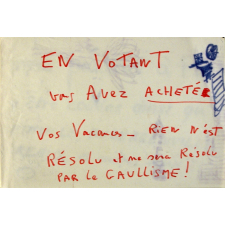 EN VOTANT
vous Avez ACHETÉR
Vos Vacances - RIEN N'EST
RÉSOLU et ne sera Résolu
PAR le GAULLISME !